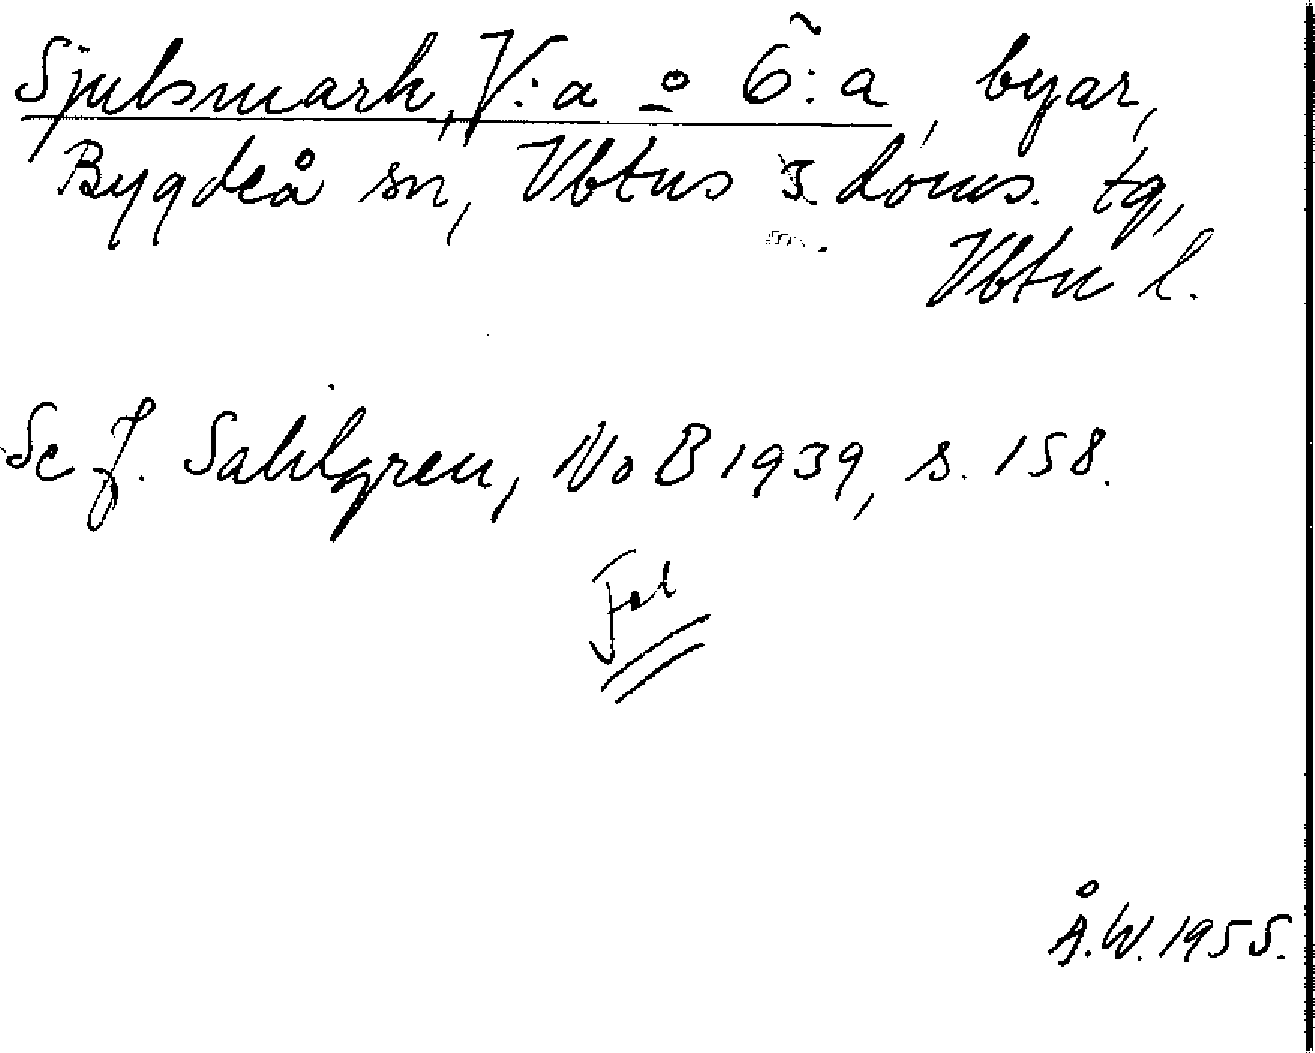 Sjulsmark, V:a o Ö:a, byar,
Bygdeå sn, Vbtns 3. doms. tg,
Vbtn l.
Se J. Sahlgren, NoB 1939, s. 158.
Å.W. 1955.